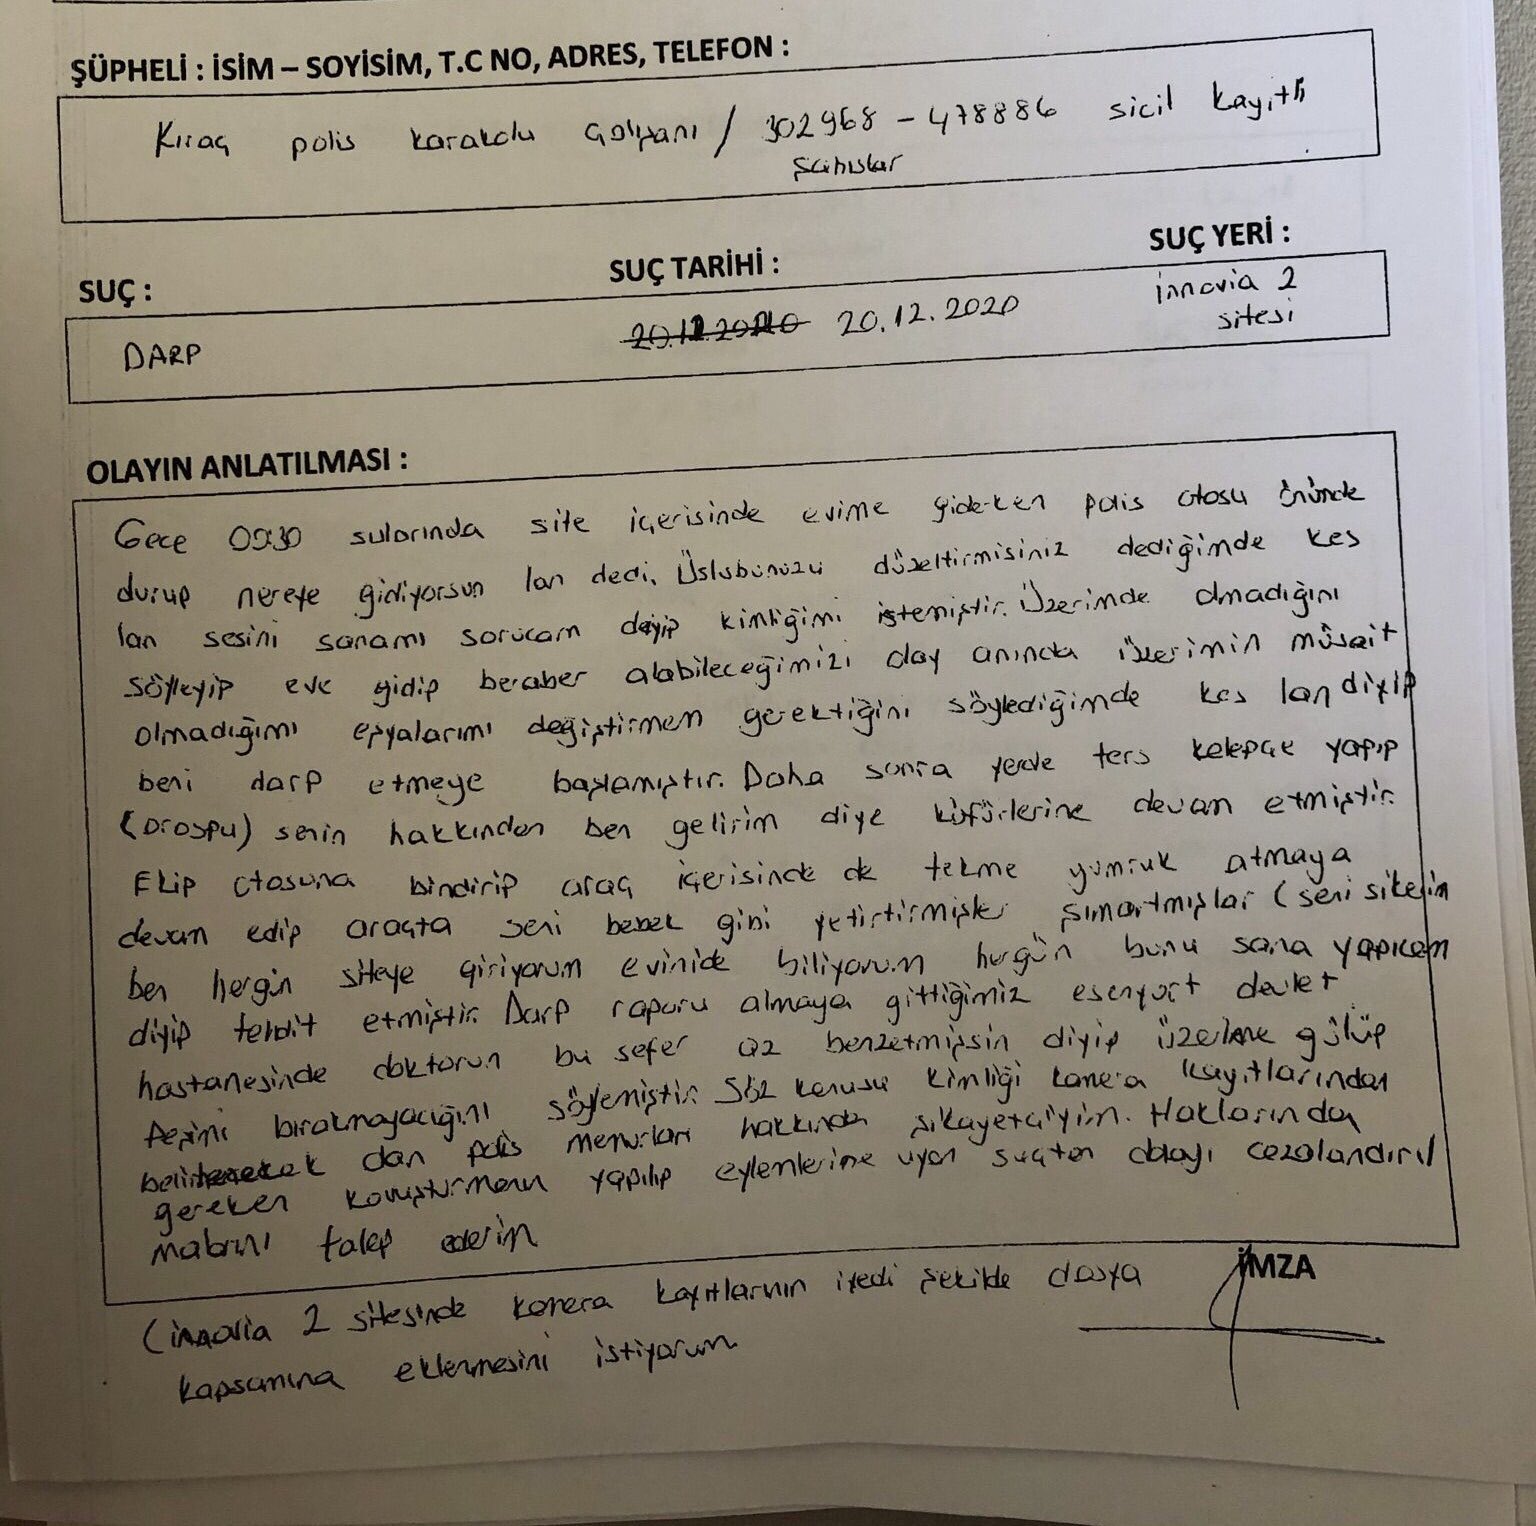 ŞÜPHELİ : İSİM – SOYİSİM, T.C NO, ADRES, TELEFON :
Kıraç polis karakolu çalışanı / 302968 - 478886 sicil kayıtlı
şahıslar
SUÇ : SUÇ TARİHİ : SUÇ YERİ :
DARP 20.12.2020 innovia 2
sitesi
OLAYIN ANLATILMASI :
Gece 00:30 sularında site içerisinde evime giderken polis otosu önümde
durup nereye gidiyorsun lan dedi. Üslubunuzu düzeltirmisiniz dediğimde kes
lan sesini sanamı sorucam deyip kimliğimi istemiştir. Üzerimde olmadığını
söyleyip eve gidip beraber alabileceğimizi olay anında üzerimin müsait
olmadığımı eşyalarımı değiştirmem gerektiğini söylediğimde kes lan diyip
beni darp etmeye başlamıştır. Daha sonra yerde ters kelepçe yapıp
(orospu) senin hakkından ben gelirim diye küfürlerine devam etmiştir.
Ekip otosuna bindirip araç içerisinde de tekme yumruk atmaya
devam edip araçta seni bebek gibi yetirtirmişler şımartmışlar (seni sikerim
ben hergün siteye giriyorum evinide biliyorum hergün bunu sana yapıcam
diyip tehdit etmiştir. Darp raporu almaya gittiğimiz esenyurt devlet
hastanesinde doktorun bu sefer az benzetmişsin diyip üzerine gülüp
peşimi bırakmayacığını söylemiştir. Söz konusu kimliği kamera kayıtlarından
belirlenecek olan polis memurları hakkında şikayetçiyim. Haklarında
gereken kovuşturmanın yapılıp eylemlerine uyan suçtan dolayı cezalandırıl
malarını talep ederim
İMZA
(innovia 2 sitesinde kamera kayıtlarının ivedi şekilde dosya
kapsamına eklenmesini istiyorum